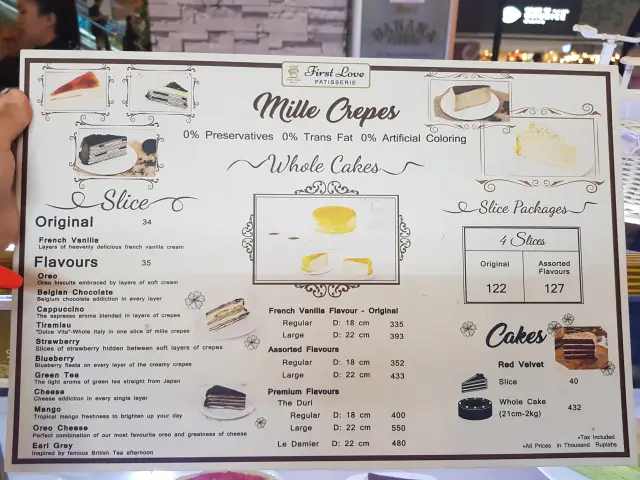 BANANA
First Love
PATISSERIE
Mille Crepes
0% Preservatives 0% Trans Fat 0% Artificial Coloring
Slice
Original 34
French Vanilla
Layers of heavenly delicious french vanilla cream
Flavours 35
Oreo
Oreo biscuits embraced by layers of soft cream
Belgian Chocolate
Belgium chocolate addiction in every layer
Cappuccino
The espresso aroma blended in layers of crepes
Tiramisu
"Dolce Vita"-Whole Italy in one slice of mille crepes
Strawberry
Slices of strawberry hidden between soft layers of crepes
Blueberry
Blueberry fiesta on every layer of the creamy crepes
Green Tea
The light aroma of green tea straight from Japan
Cheese
Cheese addiction in every single layer
Mango
Tropical mango freshness to brighten up your day
Oreo Cheese
Perfect combination of our most favourite oreo and greatness of cheese
Earl Grey
Inspired by famous British Tea afternoon
Whole Cakes
French Vanilla Flavour - Original
Regular D: 18 cm 335
Large D: 22 cm 393
Assorted Flavours
Regular D: 18 cm 352
Large D: 22 cm 433
Premium Flavours
The Duri
Regular D: 18 cm 400
Large D: 22 cm 550
Le Damier D: 22 cm 480
Slice Packages
4 Slices
Original
Assorted
Flavours
122 127
Cakes
Red Velvet
Slice 40
Whole Cake 432
(21cm-2kg)
*Tax Included
*All Prices in Thousand Rupiahs